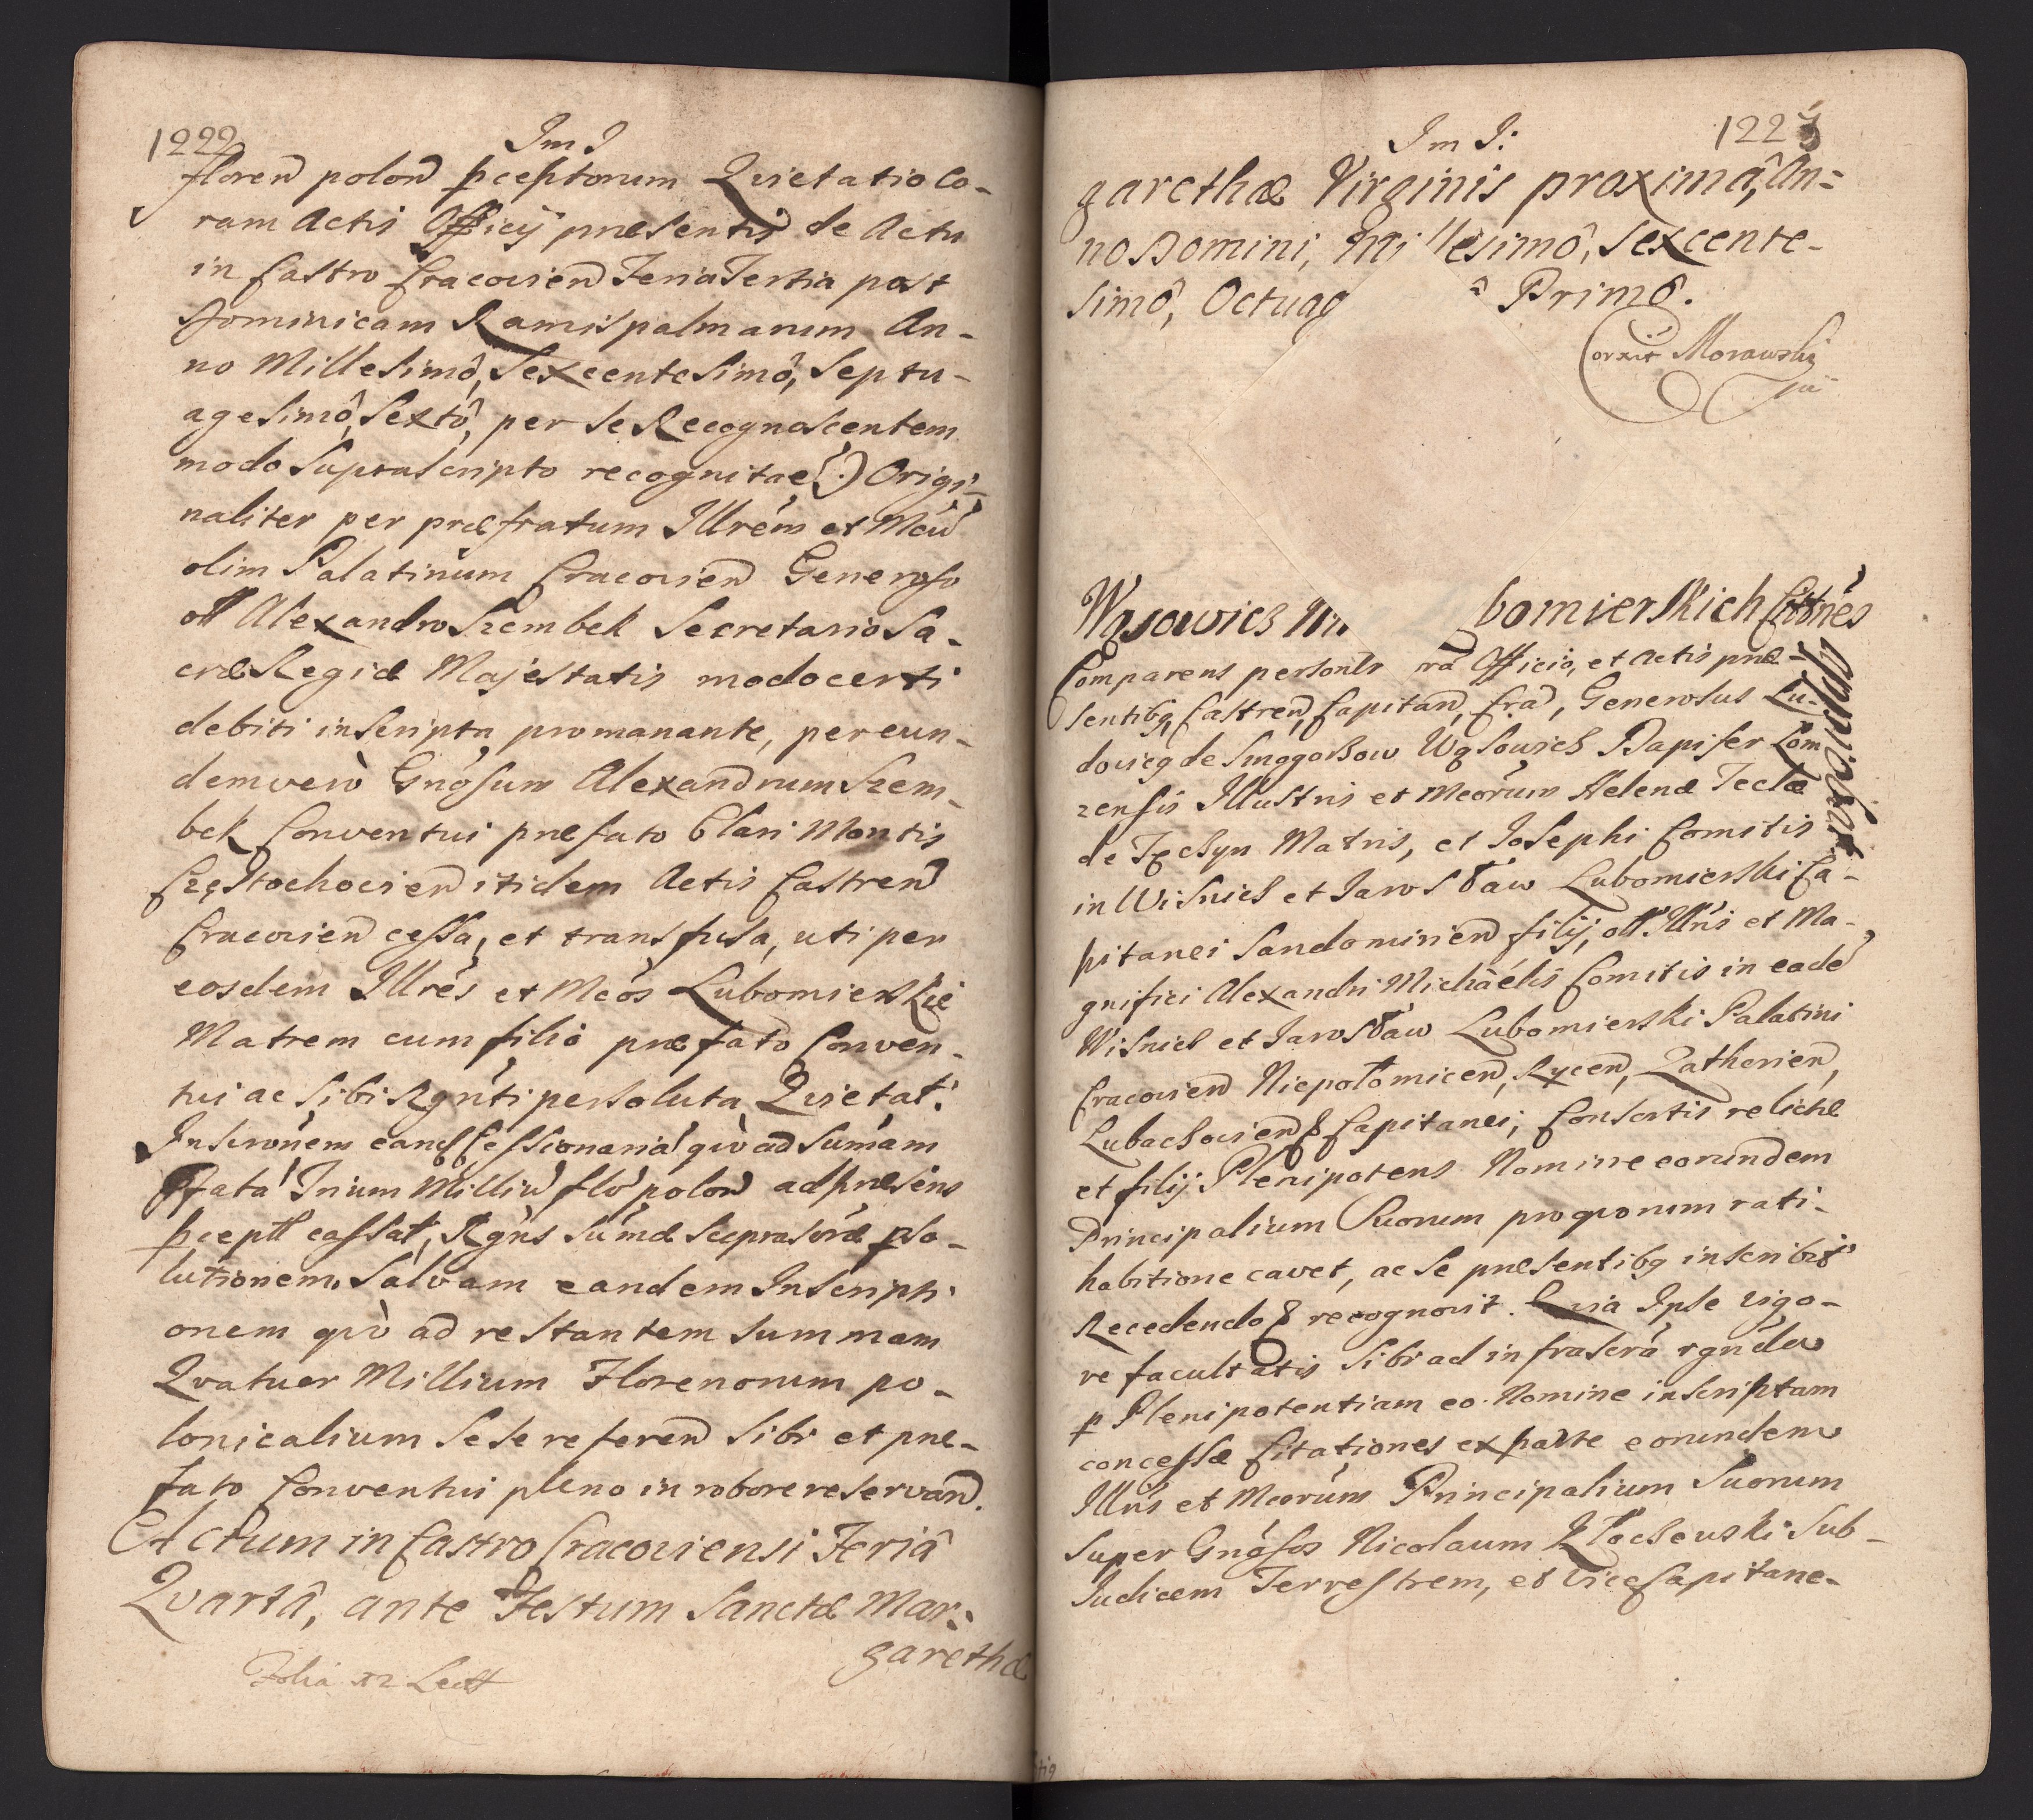 1222
Im I
floren polon pceptorum Qvietatio Co-
ram Actis Officij præsentis de Actu
in Castro Cracovien Feria Tertia post
Dominicam Ramis palmarum An-
no Millesimô, Sexcentesimô, Septu-
agesimô, Sextô, per se Recognoscentem
modo Suprascripto recognitae (.) Origi-
naliter per præfratum Illrém et Mcú
olim Palatinum Cracovien Generoso
oll Alexandro Szembek Secretario Sa-
cræ Regiæ Majestatis modo certi
debiti inscripta promanante, per eun-
dem verò Gnósum Alexandrum Szem-
bek Conventui præfato Clari Montis
Częstochovien itidem Actis Castren
Cracovien cessa, et transfusa, uti per
eosdem Illrés et Mcós Lubomierskie
Matrem cum filio præfato Conven-
tui ac sibi Rgnti persoluta Qvietat.
Inscronem eand Cessionariá qvò ad Sumám
Pfatá Trium Milliu flo polon ad præsens
pcepti cassat, Rgńs Súmæ Supraścræ pso-
lutionem, Salvam eandem Inscripti-
onem qvò ad restantem summam
Qvatuor Millium Florenorum po-
lonicalium sese referen Sibi et præ-
fato Conventui pleno in robore reservan.
Actum in Castro Cracoviensi Feriâ
Qvartâ, ante Festum Sanctæ Mar-
garethæ
Im I:
1223
garethæ Virginis proximâ, An-
no Domini, Millesimô, Sexcente-
simô, Octuag ô Primô.
Corrxit Morawski
Wąsowicz bomierskich Cittónes
Comparens personlr rá Officio, et Actis præ-
sentibg Castren, Capitan, Cra, Generosus Lu-
dovicg de Smogorzow Wąsowicz Dapifer Lom
zensis Illustris et Mcórum Helenæ Teclæ
de Tęczyn Matris, et Josephi Comitis
in Wisnicz et Jarosław Lubomierski Ca-
pitanei Sandomirien filij, oll Illrís et Ma-
gnifici Alexandri Michäélis Comitis in eadé
Wisnicz et Jarosław Lubomierski Palatini
Cracovien Niepołomicen, Rycen, Zathorien,
Lubaczovien & Capitanei, Consortis relictæ
et filij Plenipotens Nomine eorundem
Principalium Suorum pro qvorum rati-
habitione cavet, ac se præsentibg inscribit
Recedendo & recognovit. Qvia Ipse vigo-
re facultatis Sibi ad infrascrá rgńda
p Plenipotentiam eo Nomine inscriptam
concessæ Citationes ex parte eorundem
Illrís et Mcórum Principalium Suorum
super Gnósos Nicolaum Kłoczewski Sub-
Judicem Terrestrem, et ViceCapitane-